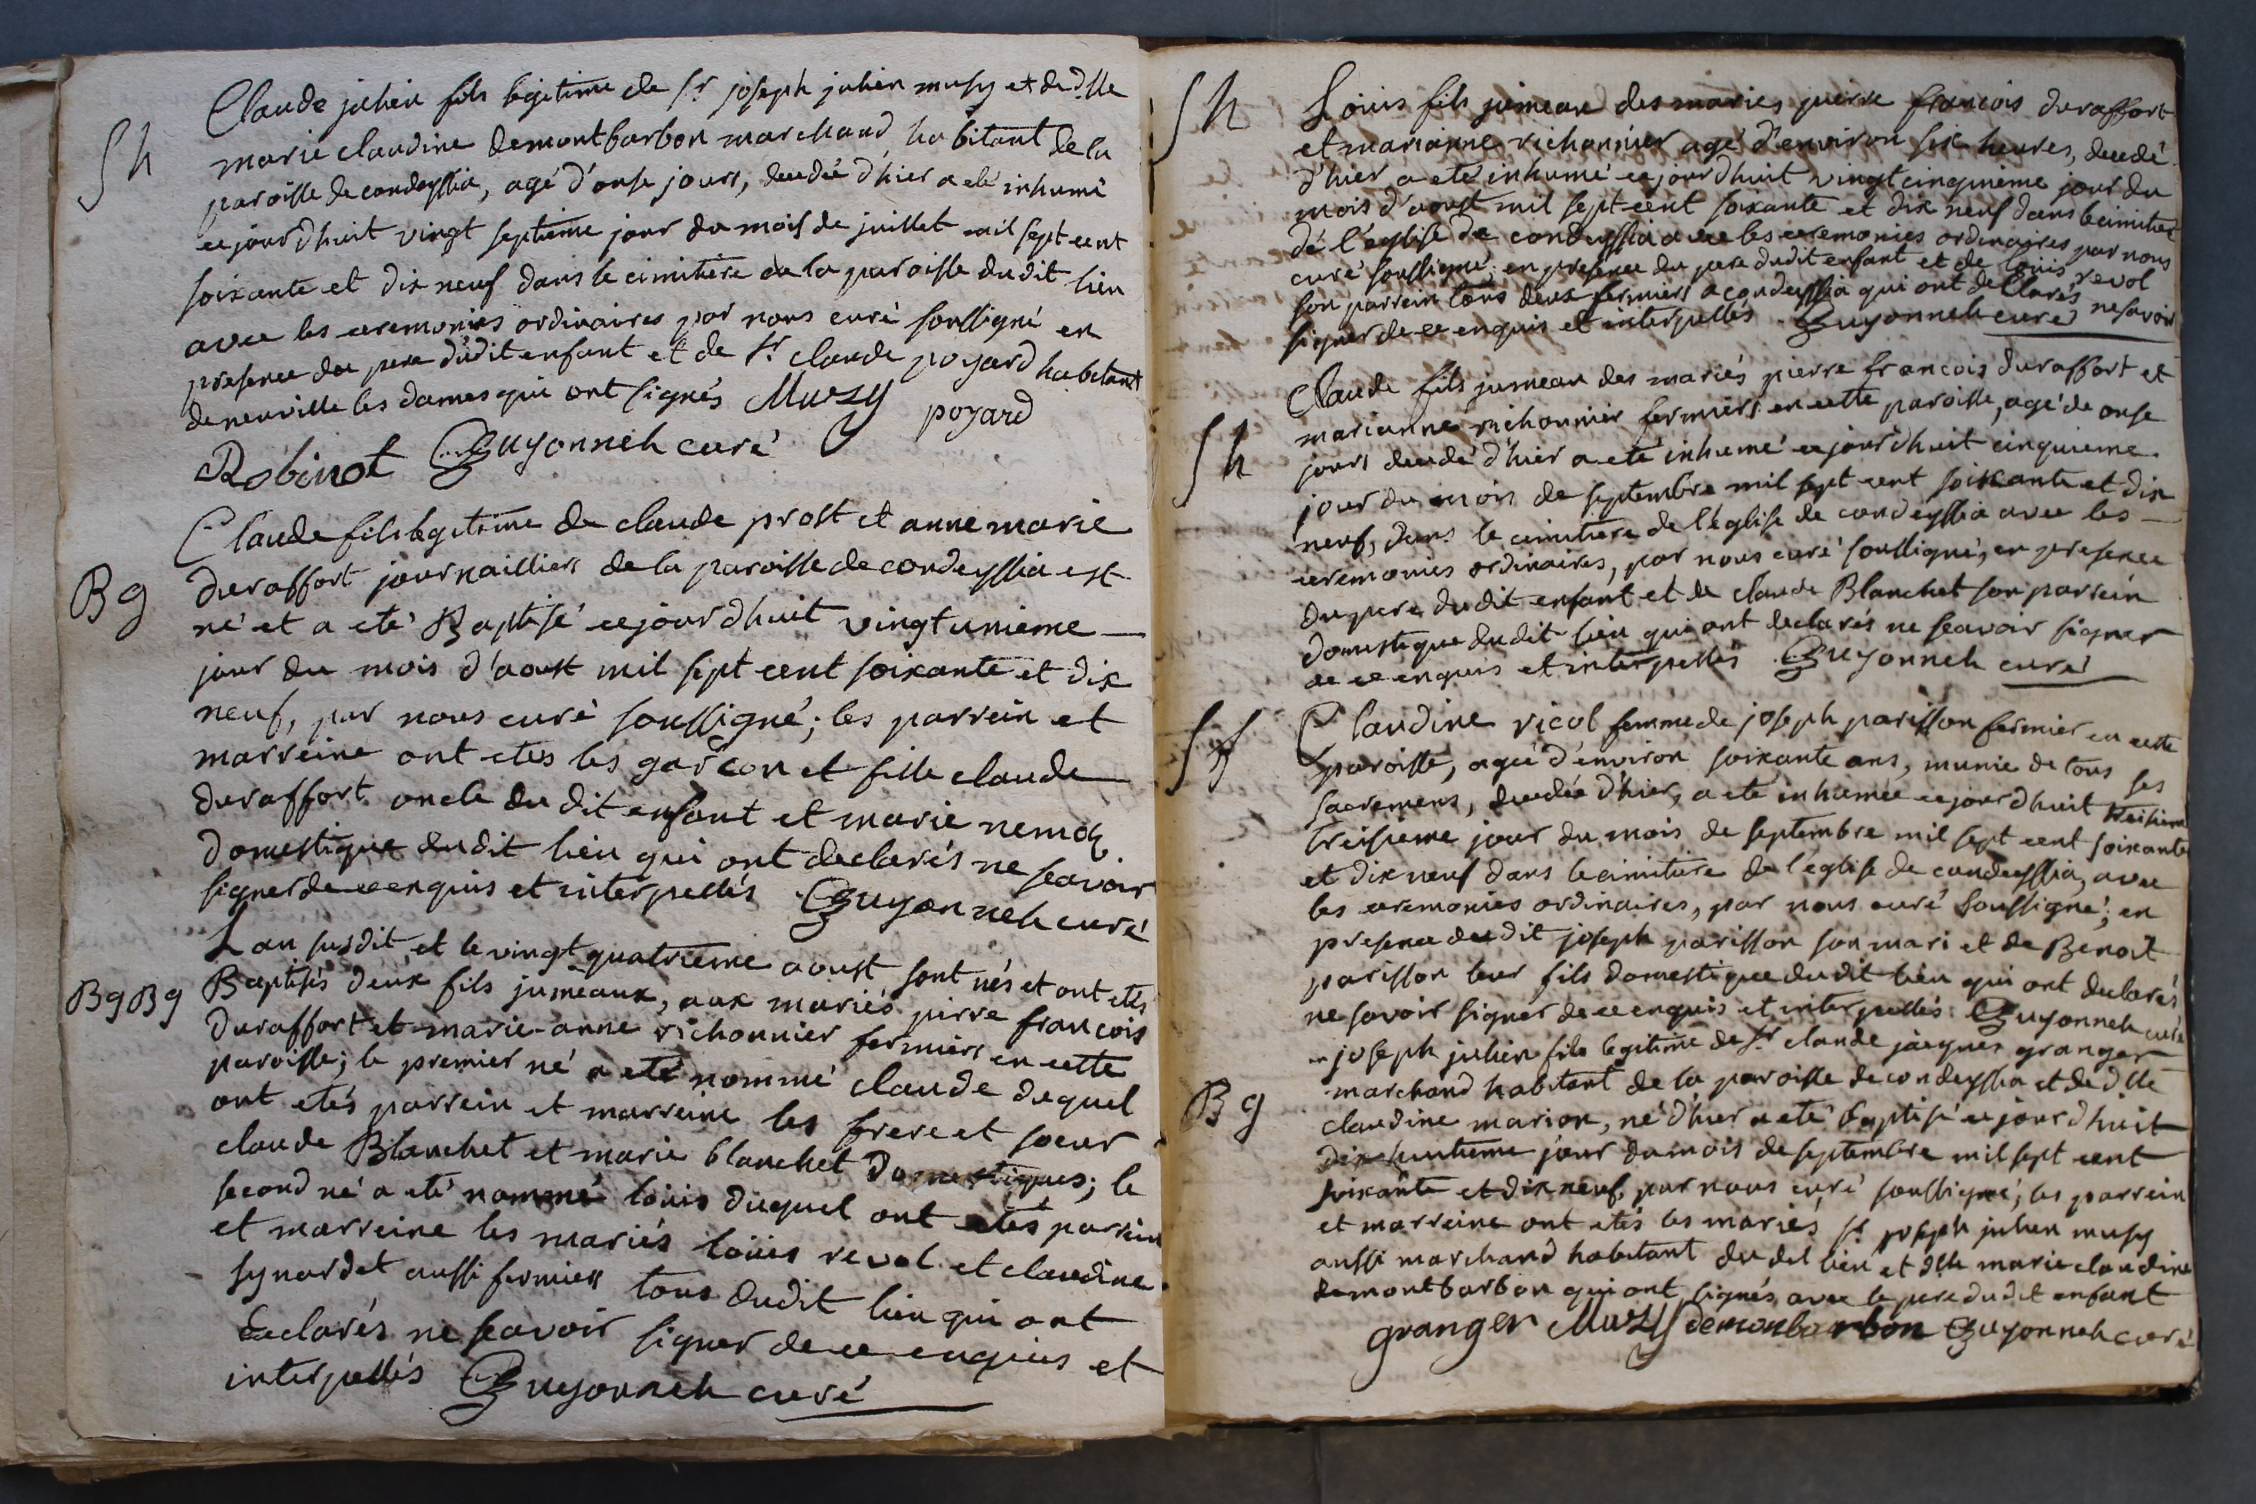 Claude julien fils legitime de Sr joseph julien musy et de dlle
Sh
marie claudine demontbarbon marchand, habitant de la
paroisse de condeyssia, agé d'onse jours, decedé d'hier a eté inhumé
cejourdhuit vingt septieme jour du mois de juillet mil sept cent
soixante et dix neuf dans le cimitiere de la paroisse dudit lieu
avec les ceremonies ordinaires par nous curé soussigné en
presence du pere dudit enfant et de Sr claude poyard habitant
de neuville les dames qui ont signés Muzy poyard
Robinot Guyonneh curé
Claude fils legitime de claude prost et anne marie
Bg
duraffort journailliers de la paroisse de condeyssia est
né et a eté Baptisé cejourdhuit vingt unieme
jour du mois d'aoust mil sept cent soixante et dix
neuf, par nous curé soussigné; les parrein et
marreine ont etes les garçon et fille claude
duraffort oncle du dit enfant et marie
domestique dudit lieu qui ont declarés ne scavoir
signer de ce enquis et interpellés Guyonneh curé
Lan susdit et le vingt quatrieme aoust sont nés et ont etés
BgBg
Baptisés deux fils jumeaux, aux mariés pirre francois
duraffort et marie-anne richonnier fermiers en cette
paroisse; le premier né a eté nommé claude duquel
ont etés parrein et marreine les frere et soeur
claude Blanchet et marie blanchet domestiques; le
second né a eté nommé loüis duquel ont etés parrein
et marreine les mariés loüis revol et claudine
synardet aussi fermiers tous dudit lieu qui ont
declarés ne scavoir signer de ce enquis et
interpellés Guyonneh curé
Sh
Loüis fils jumeau des mariés pierre francois duraffort
et marianne richonnier agé d'environ six heures, decedé
d'hier a eté inhumé cejourdhuit vingt cinquieme jour du
mois d'aoust mil sept cent soixante et dix neuf dans le cimitiere
de l'eglise de condeyssia avec les ceremonies ordinaires par nous
curé soussigné, en presence du pere dudit enfant et de loüis revol
son parrein tous deux fermiers a condeyssia qui ont declarés ne savoir
signer de ce enquis et interpellés Guyonneh curé
Claude fils jumeau des mariés pierre francois duraffort et
Sh
marianne richonnier fermiers en cette paroisse, agé de onse
jours decedé d'hier a eté inhumé cejourdhuit cinquieme
jour du mois de septembre mil sept cent soixante et dix
neuf, dans le cimitiere de l'église de condeyssia avec les
ceremonies ordinaires, par nous curé soussigné, en presence
du pere dudit enfant et de claude Blanchet son parrein
domestique dudit lieu qui ont declarés ne scavoir signer
de ce enquis et interpellés Guyonneh curé
Sf
Claudine vicol femme de joseph parisson fermier en cette
paroisse, agée d'environ soixante ans, munie de tous ses
sacremens, decedée d'hier, a eté inhumée cejourdhuit treisieme
treisieme jour du mois de septembre mil sept cent soixante
et dix neuf dans le cimitiere de l'eglise de condeyssia, avec
les ceremonies ordinaires, par nous curé soussigné; en
presence dudit joseph parisson son mari et de Benoit
parisson leur fils domestique dudit lieu qui ont declarés
ne savoir signer de ce enquis et interpellés Guyonneh curé
joseph julien fils legitime de Sr claude jacques granger
Bg
marchand habitant de la paroisse de condeyssia et de dlle
claudine marion, né d'hier a eté baptisé cejourdhuit
dix huitieme jour du mois de septembre mil sept cent
soixante et dix neuf, par nous curé soussigné; les parrein
et marreine ont etés les mariés Sr joseph julien musy
aussi marchand habitant du dit lieu et dlle marie claudine
demontbarbon qui ont signés avec le pere dudit enfant
granger Muzy demonbarbon Guyonneh curé